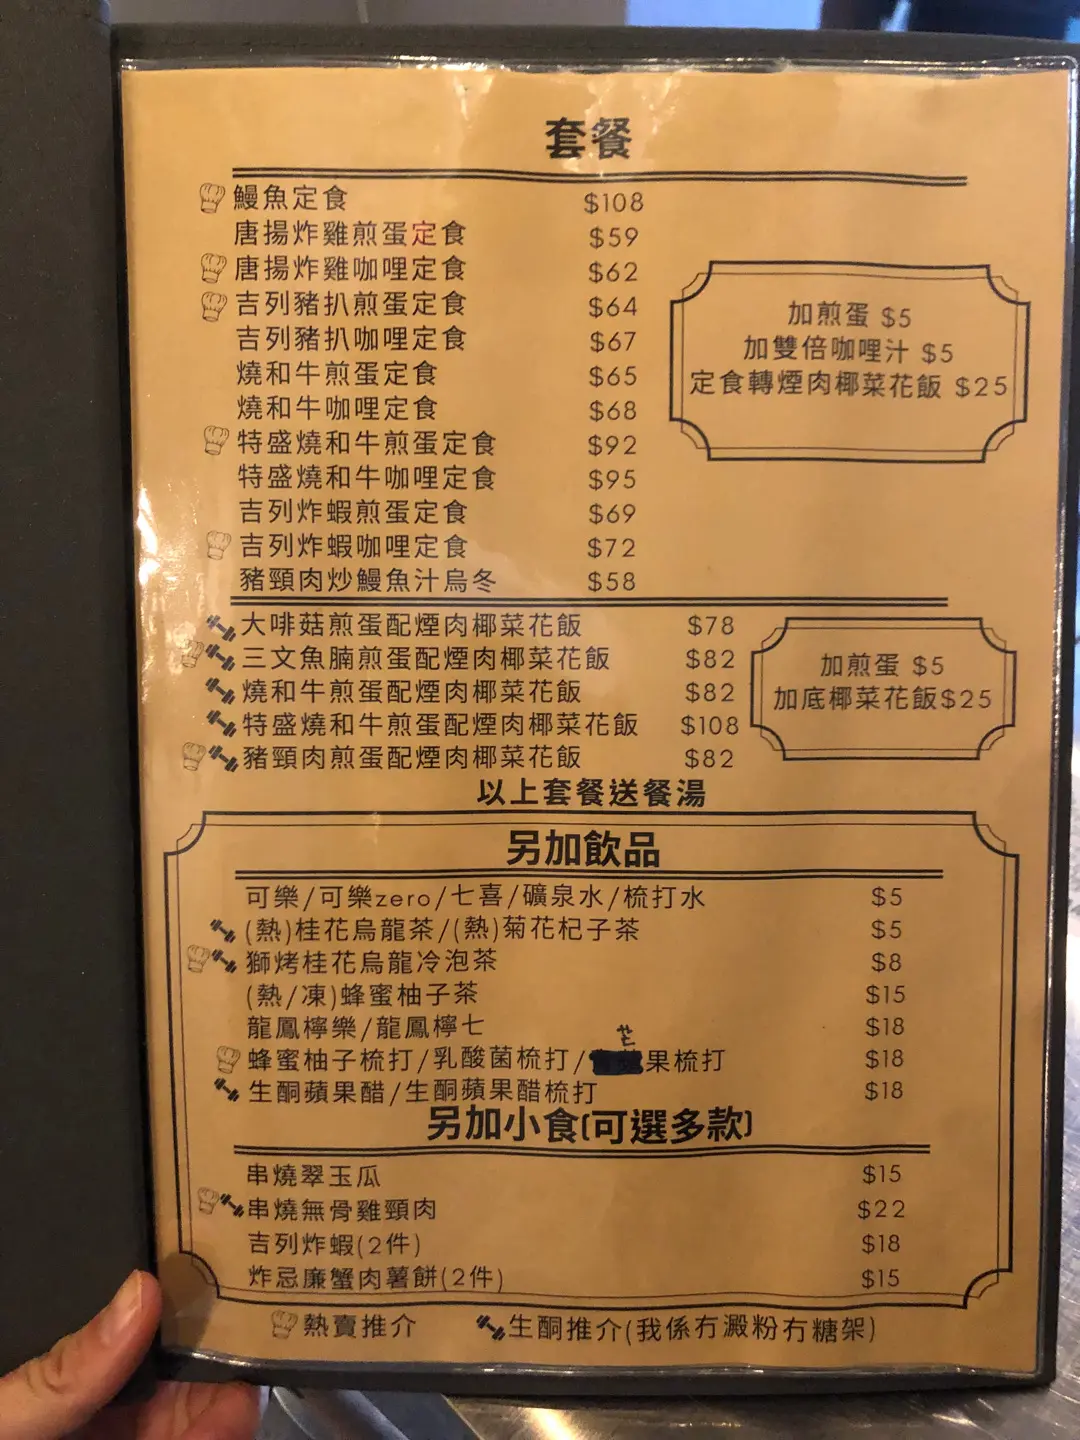 套餐
鰻魚定食 $108
唐揚炸雞煎蛋定食 $59
唐揚炸雞咖哩定食 $62
吉列豬扒煎蛋定食 $64
吉列豬扒咖哩定食 $67
燒和牛煎蛋定食 $65
燒和牛咖哩定食 $68
特盛燒和牛煎蛋定食 $92
特盛燒和牛咖哩定食 $95
吉列炸蝦煎蛋定食 $69
吉列炸蝦咖哩定食 $72
豬頸肉炒鰻魚汁烏冬 $58
加煎蛋 $5
加雙倍咖哩汁 $5
定食轉煙肉椰菜花飯 $25
大啡菇煎蛋配煙肉椰菜花飯 $78
三文魚腩煎蛋配煙肉椰菜花飯 $82
燒和牛煎蛋配煙肉椰菜花飯 $82
特盛燒和牛煎蛋配煙肉椰菜花飯 $108
豬頸肉煎蛋配煙肉椰菜花飯 $82
加煎蛋 $5
加底椰菜花飯$25
以上套餐送餐湯
另加飲品
可樂/可樂zero/七喜/礦泉水/梳打水 $5
(熱)桂花烏龍茶/(熱)菊花杞子茶 $5
獅烤桂花烏龍冷泡茶 $8
(熱/凍)蜂蜜柚子茶 $15
龍鳳檸樂/龍鳳檸七 $18
蜂蜜柚子梳打/乳酸菌梳打/果梳打 $18
生酮蘋果醋/生酮蘋果醋梳打 $18
另加小食(可選多款)
串燒翠玉瓜 $15
串燒無骨雞頸肉 $22
吉列炸蝦(2件) $18
炸忌廉蟹肉薯餅(2件) $15
熱賣推介 生酮推介(我係冇澱粉冇糖架)